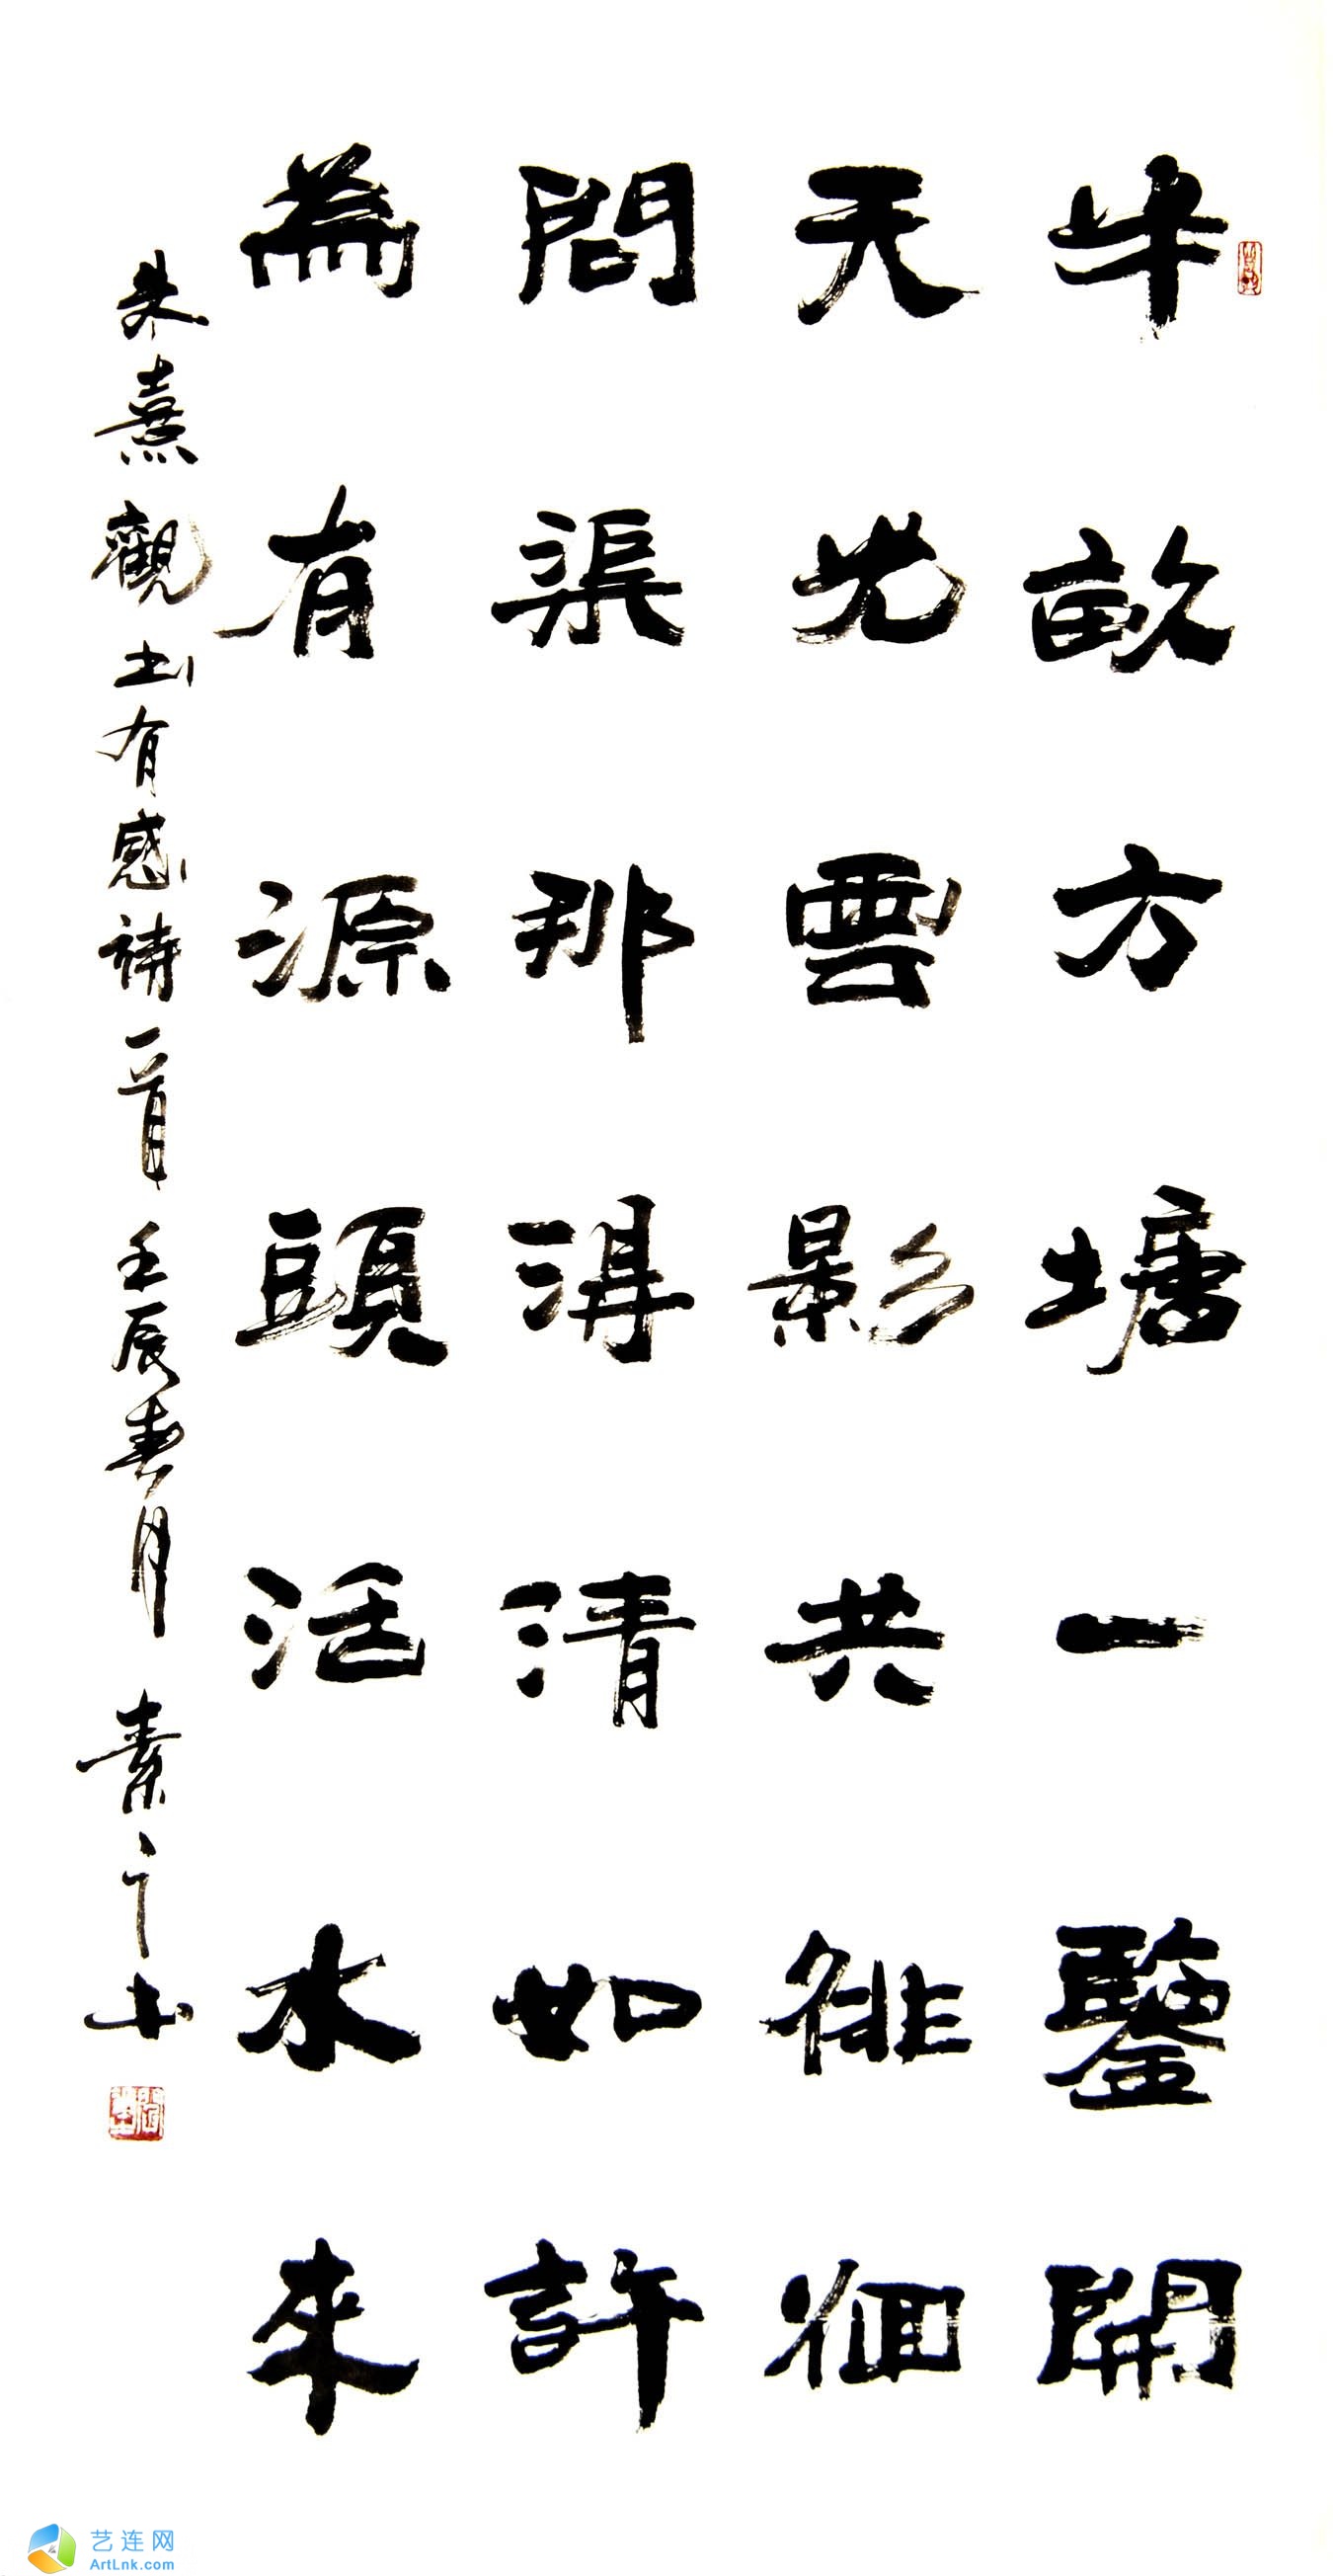 半畝方塘一鑒開
天光雲影共徘徊
問渠那得清如許
為有源頭活水來
朱熹觀書有感詩一首 壬辰春月 素
艺连网
ArtLnk.com